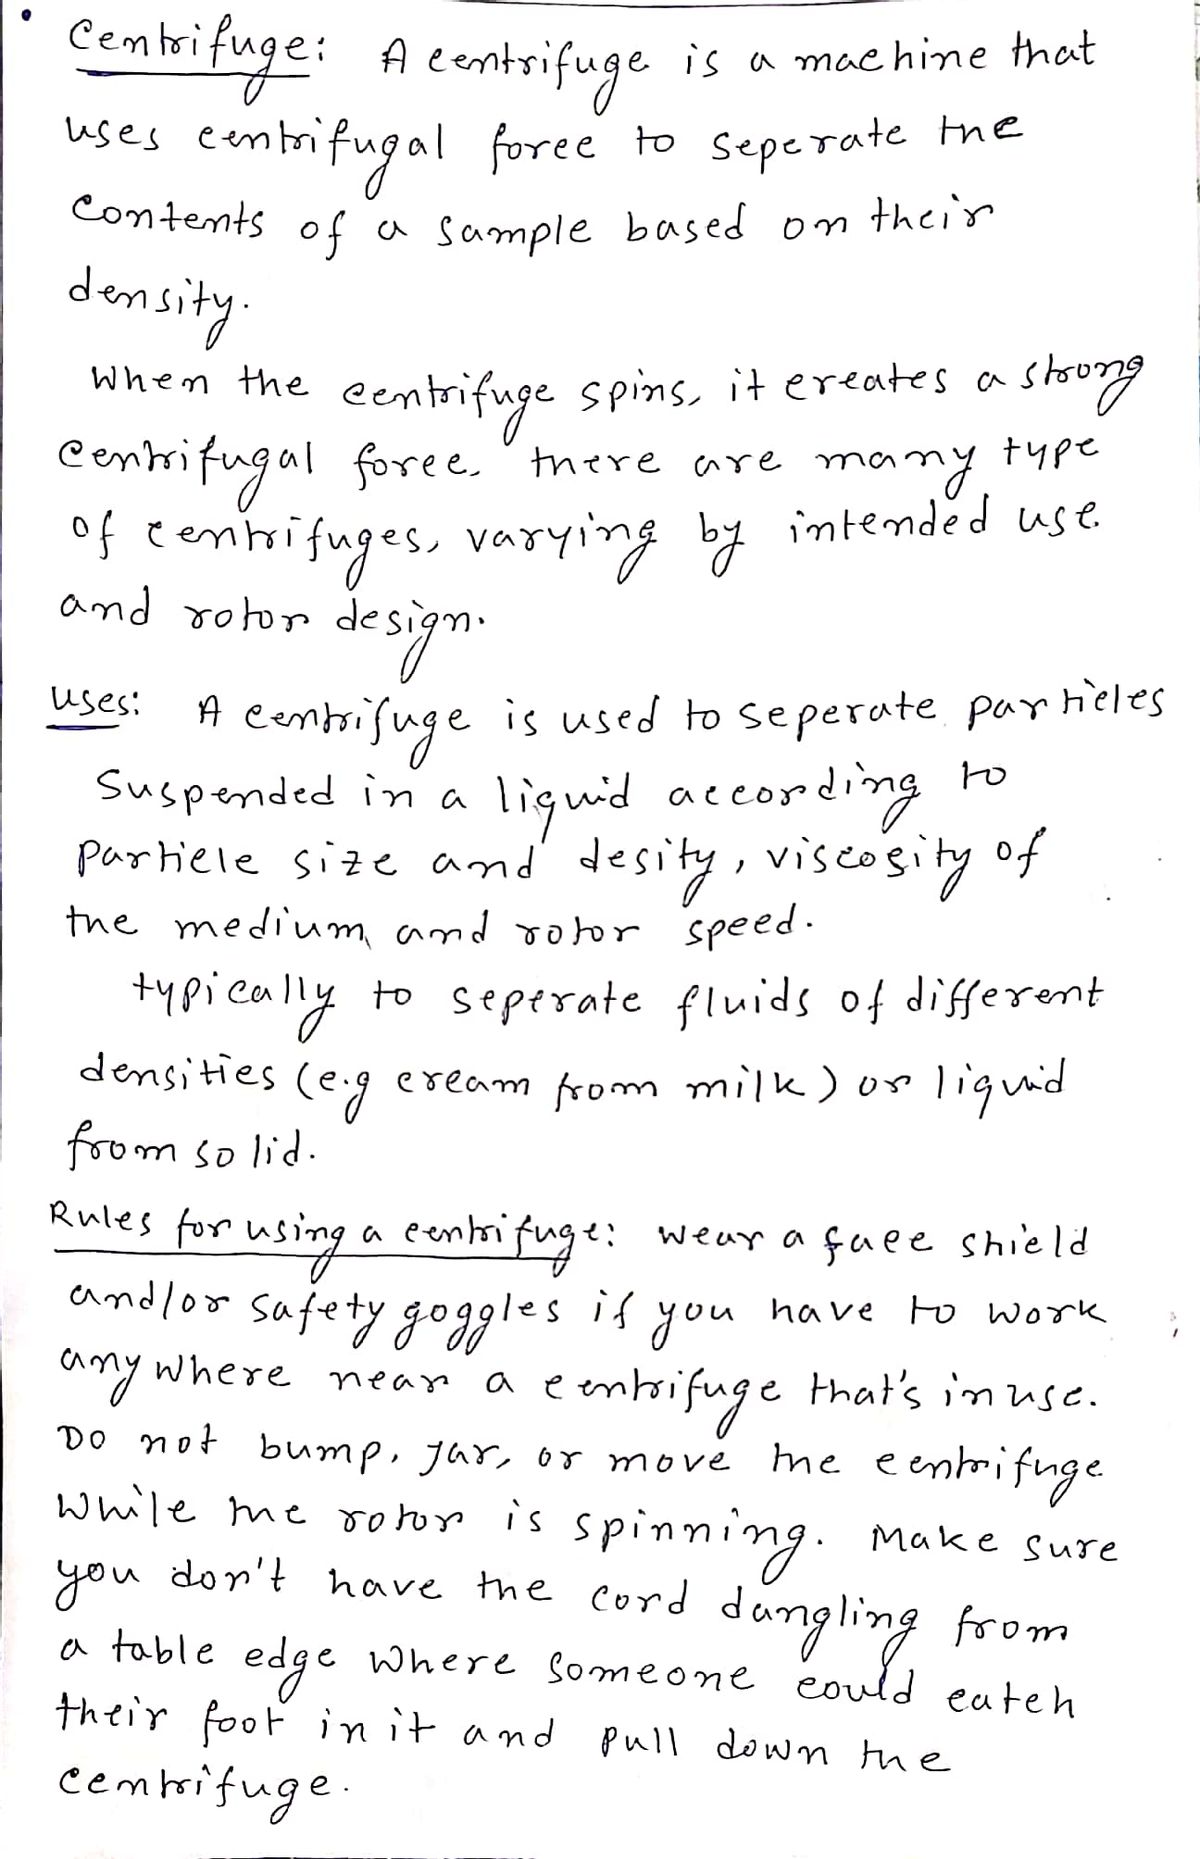 • Centrifuge: A centrifuge is a machine that
uses centrifugal force to seperate the
contents of a sample based on their
density.
When the centrifuge spins, it creates a strong
centrifugal force. there are many type
of centrifuges, varying by intended use
and rotor design.
uses: A centrifuge is used to seperate particles
suspended in a liquid according to
particle size and desity, viscosity of
the medium, and rotor speed.
typically to seperate fluids of different
densities (e.g cream from milk) or liquid
from solid.
Rules for using a centrifuge: wear a face shield
and/or safety goggles if you have to work
anywhere near a centrifuge that's in use.
Do not bump, jar, or move the centrifuge
while the rotor is spinning. Make sure
you don't have the cord dangling from
a table edge where someone could catch
their foot in it and pull down the
centrifuge.